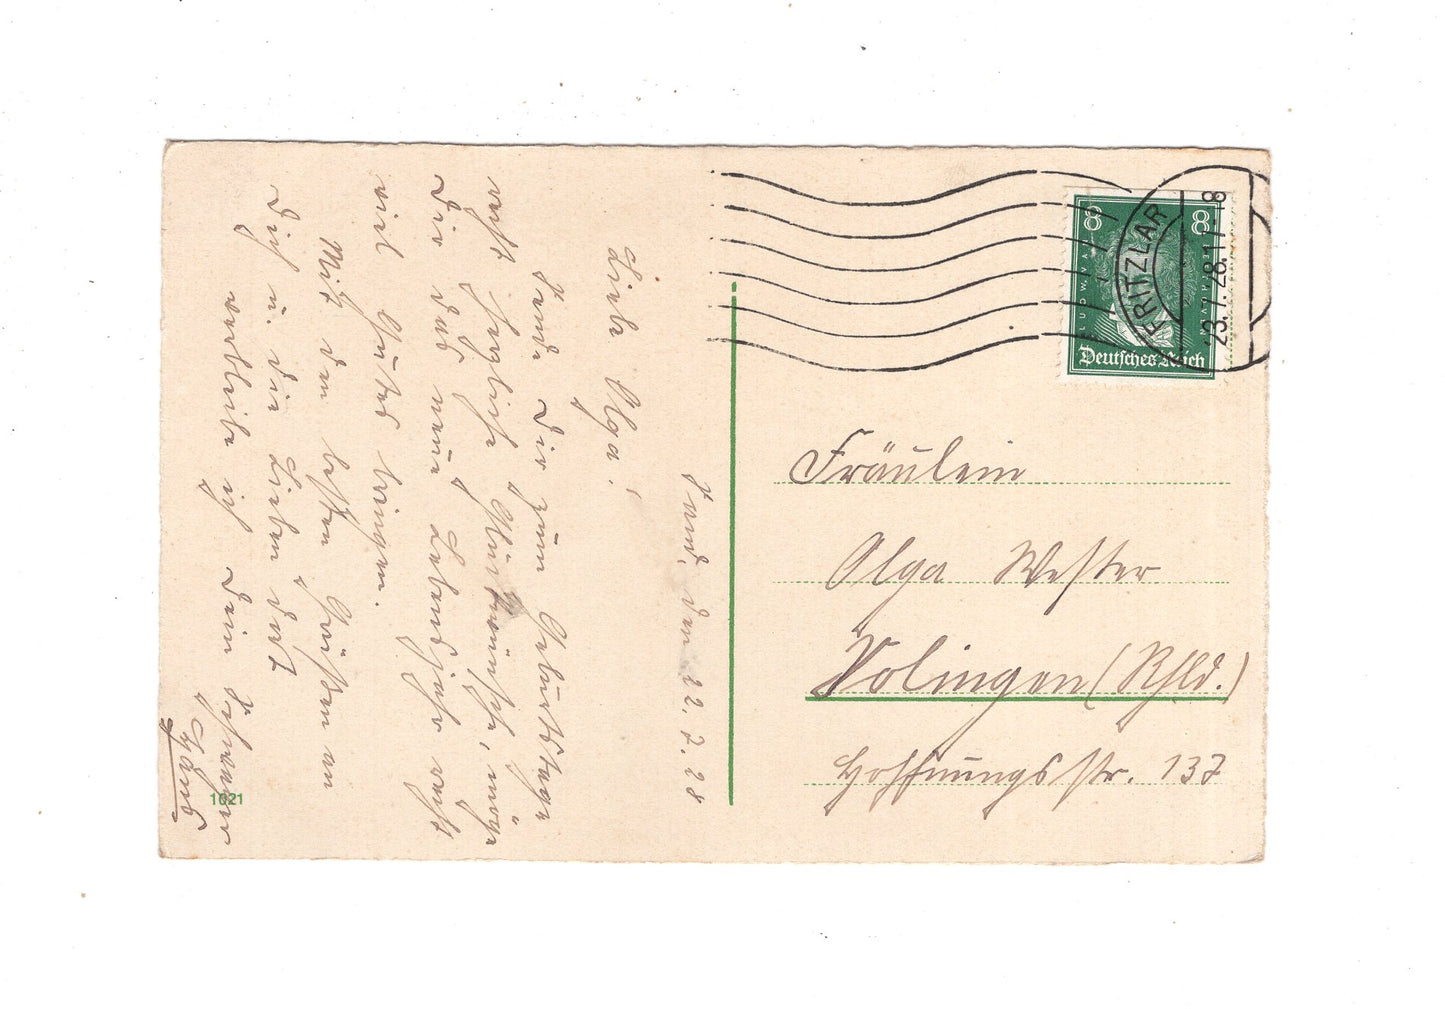 Sand, den 22.7.28
Liebe Olga!
Sende Dir zum Geburtstage
recht herzliche Glückwünsche, möge
Dir das neue Lebensjahr recht
viel Gutes bringen.
Mit den besten Grüßen an
Dich u. die Lieben
verbleibe ich Dein Schwager
Hans
1021
8 8
LUDW. VAN
Deutsches Reich
FRITZLAR
23.7.28.17-18
Fräulein
Olga Wester
Solingen (Rhld.)
Hoffnungsstr. 137